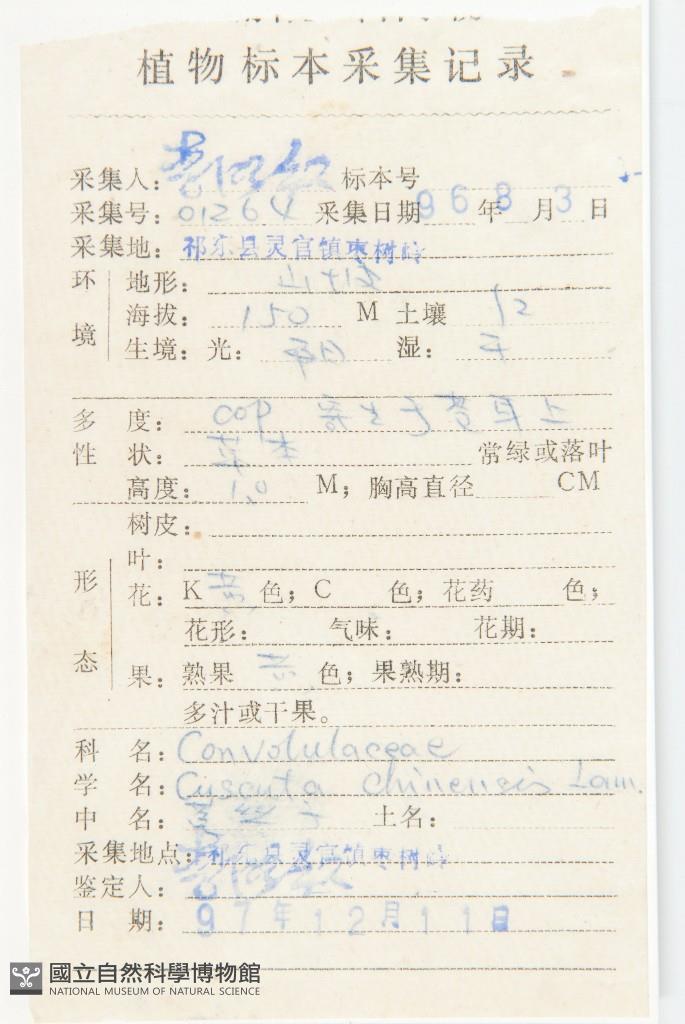 植物标本采集记录
采集人： 标本号
采集号：01264 采集日期96年8月3日
采集地：祁东县灵官镇枣树岭
环境 地形：山坡
海拔：150 M 土壤
生境：光： 湿：干
多度：cop 寄生于 草上
性状：草本 常绿或落叶
高度：1.0 M；胸高直径 CM
树皮：
形态 叶：
花：K黄色；C 色；花药 色；
花形： 气味： 花期：
果：熟果 黄 色；果熟期：
多汁或干果。
科名：Convolulaceae
学名：Cuscuta chinensis Lam.
中名：菟丝子 土名：
采集地点：祁东县灵官镇枣树岭
鉴定人：
日期：97年12月11日
國立自然科學博物館
NATIONAL MUSEUM OF NATURAL SCIENCE